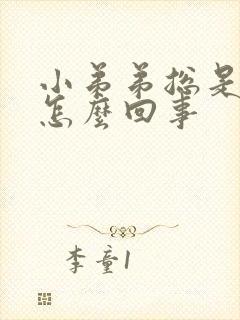 小弟弟總是
怎麼回事
李童1